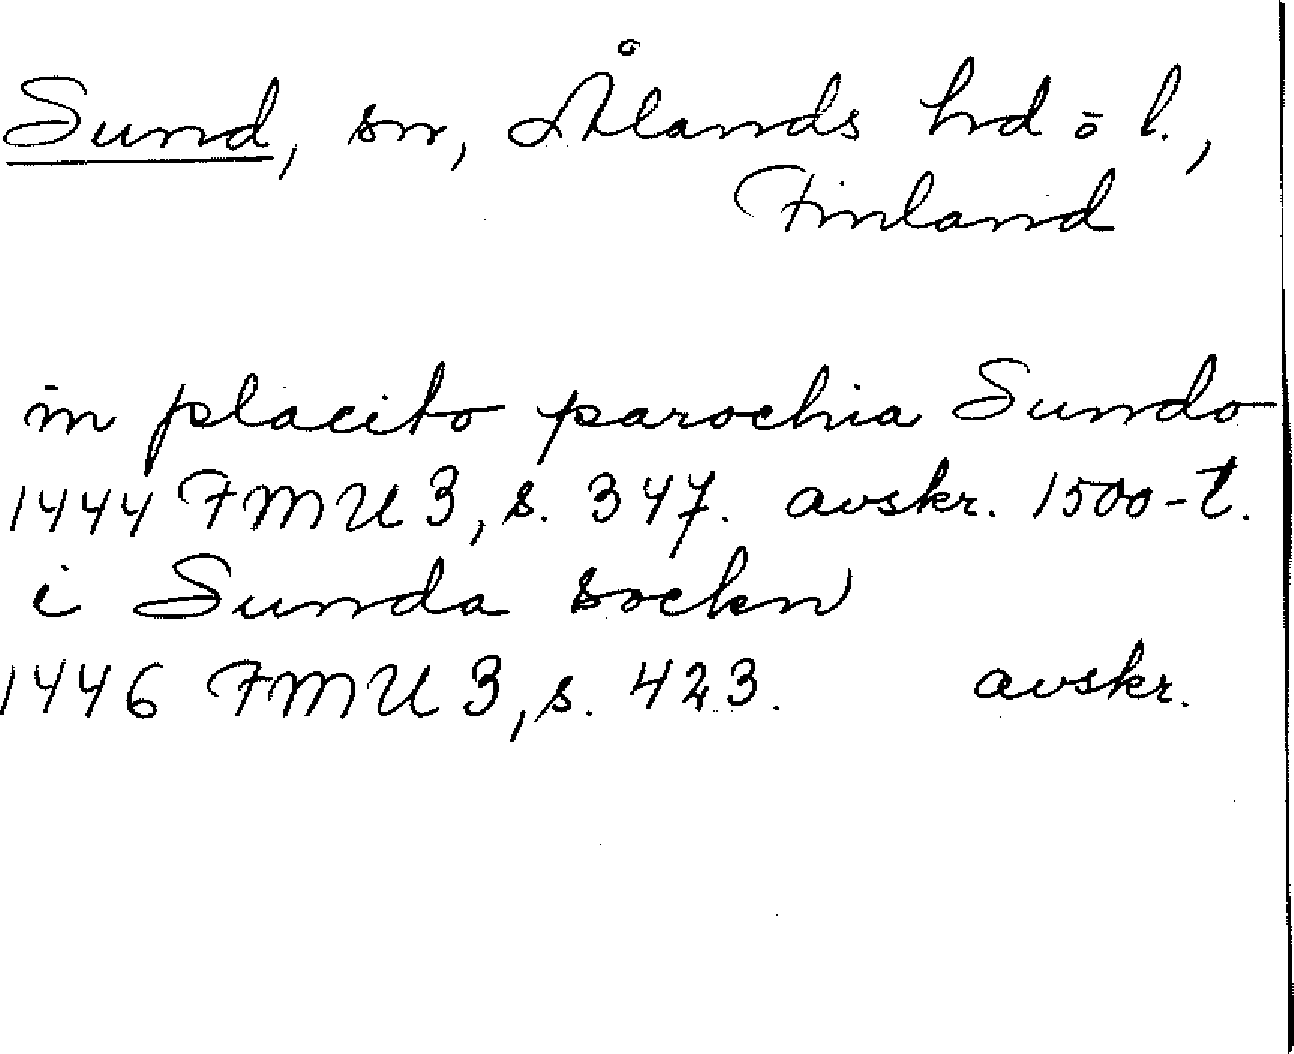 Sund, sn, Ålands hd o l.,
Finland
in placito parochia Sundo
1444 FMU 3, s. 347. avskr. 1500-t.
i Sunda sockn
1446 FMU 3, s. 423. avskr.